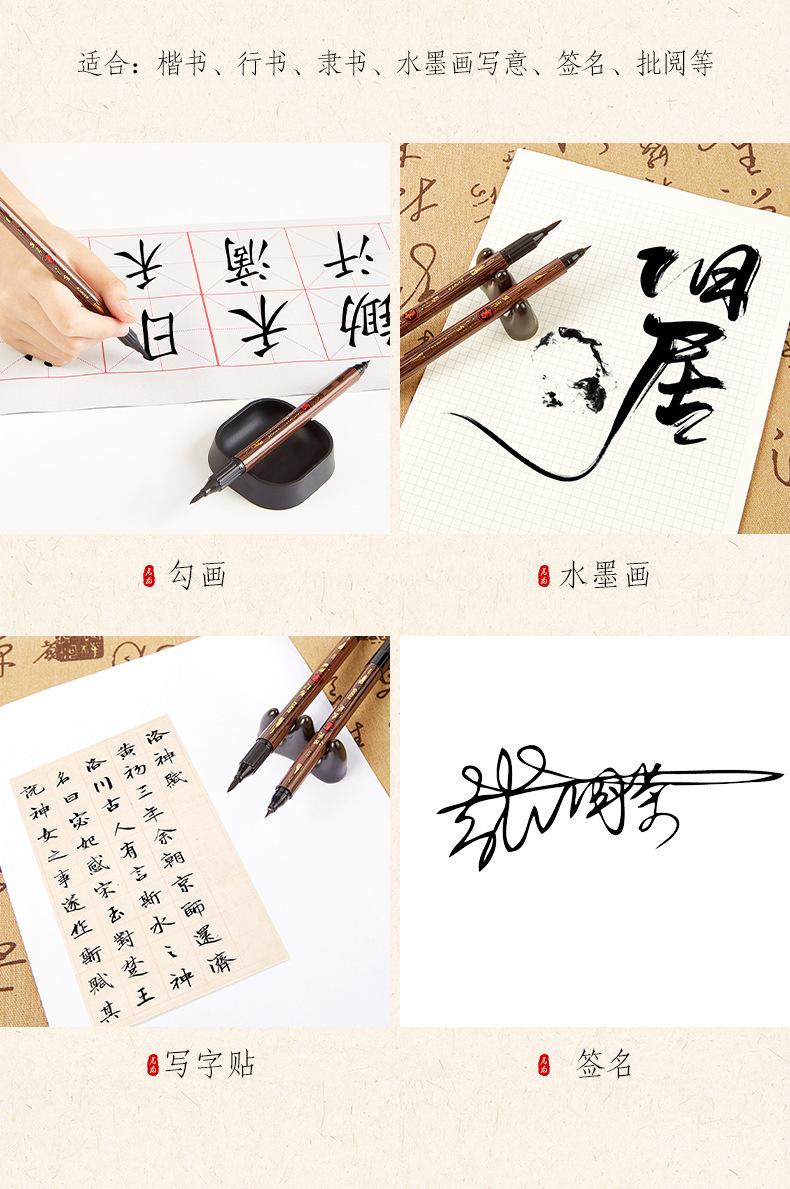 适合：楷书、行书、隶书、水墨画写意、签名、批阅等
锄禾日
汗滴禾
勾画
水墨画
洛神賦
黄初三年余朝京師還濟
洛川古人有言斯水之神
名曰宓妃感宋玉對楚王
説神女之事遂作斯賦其
写字贴
签名